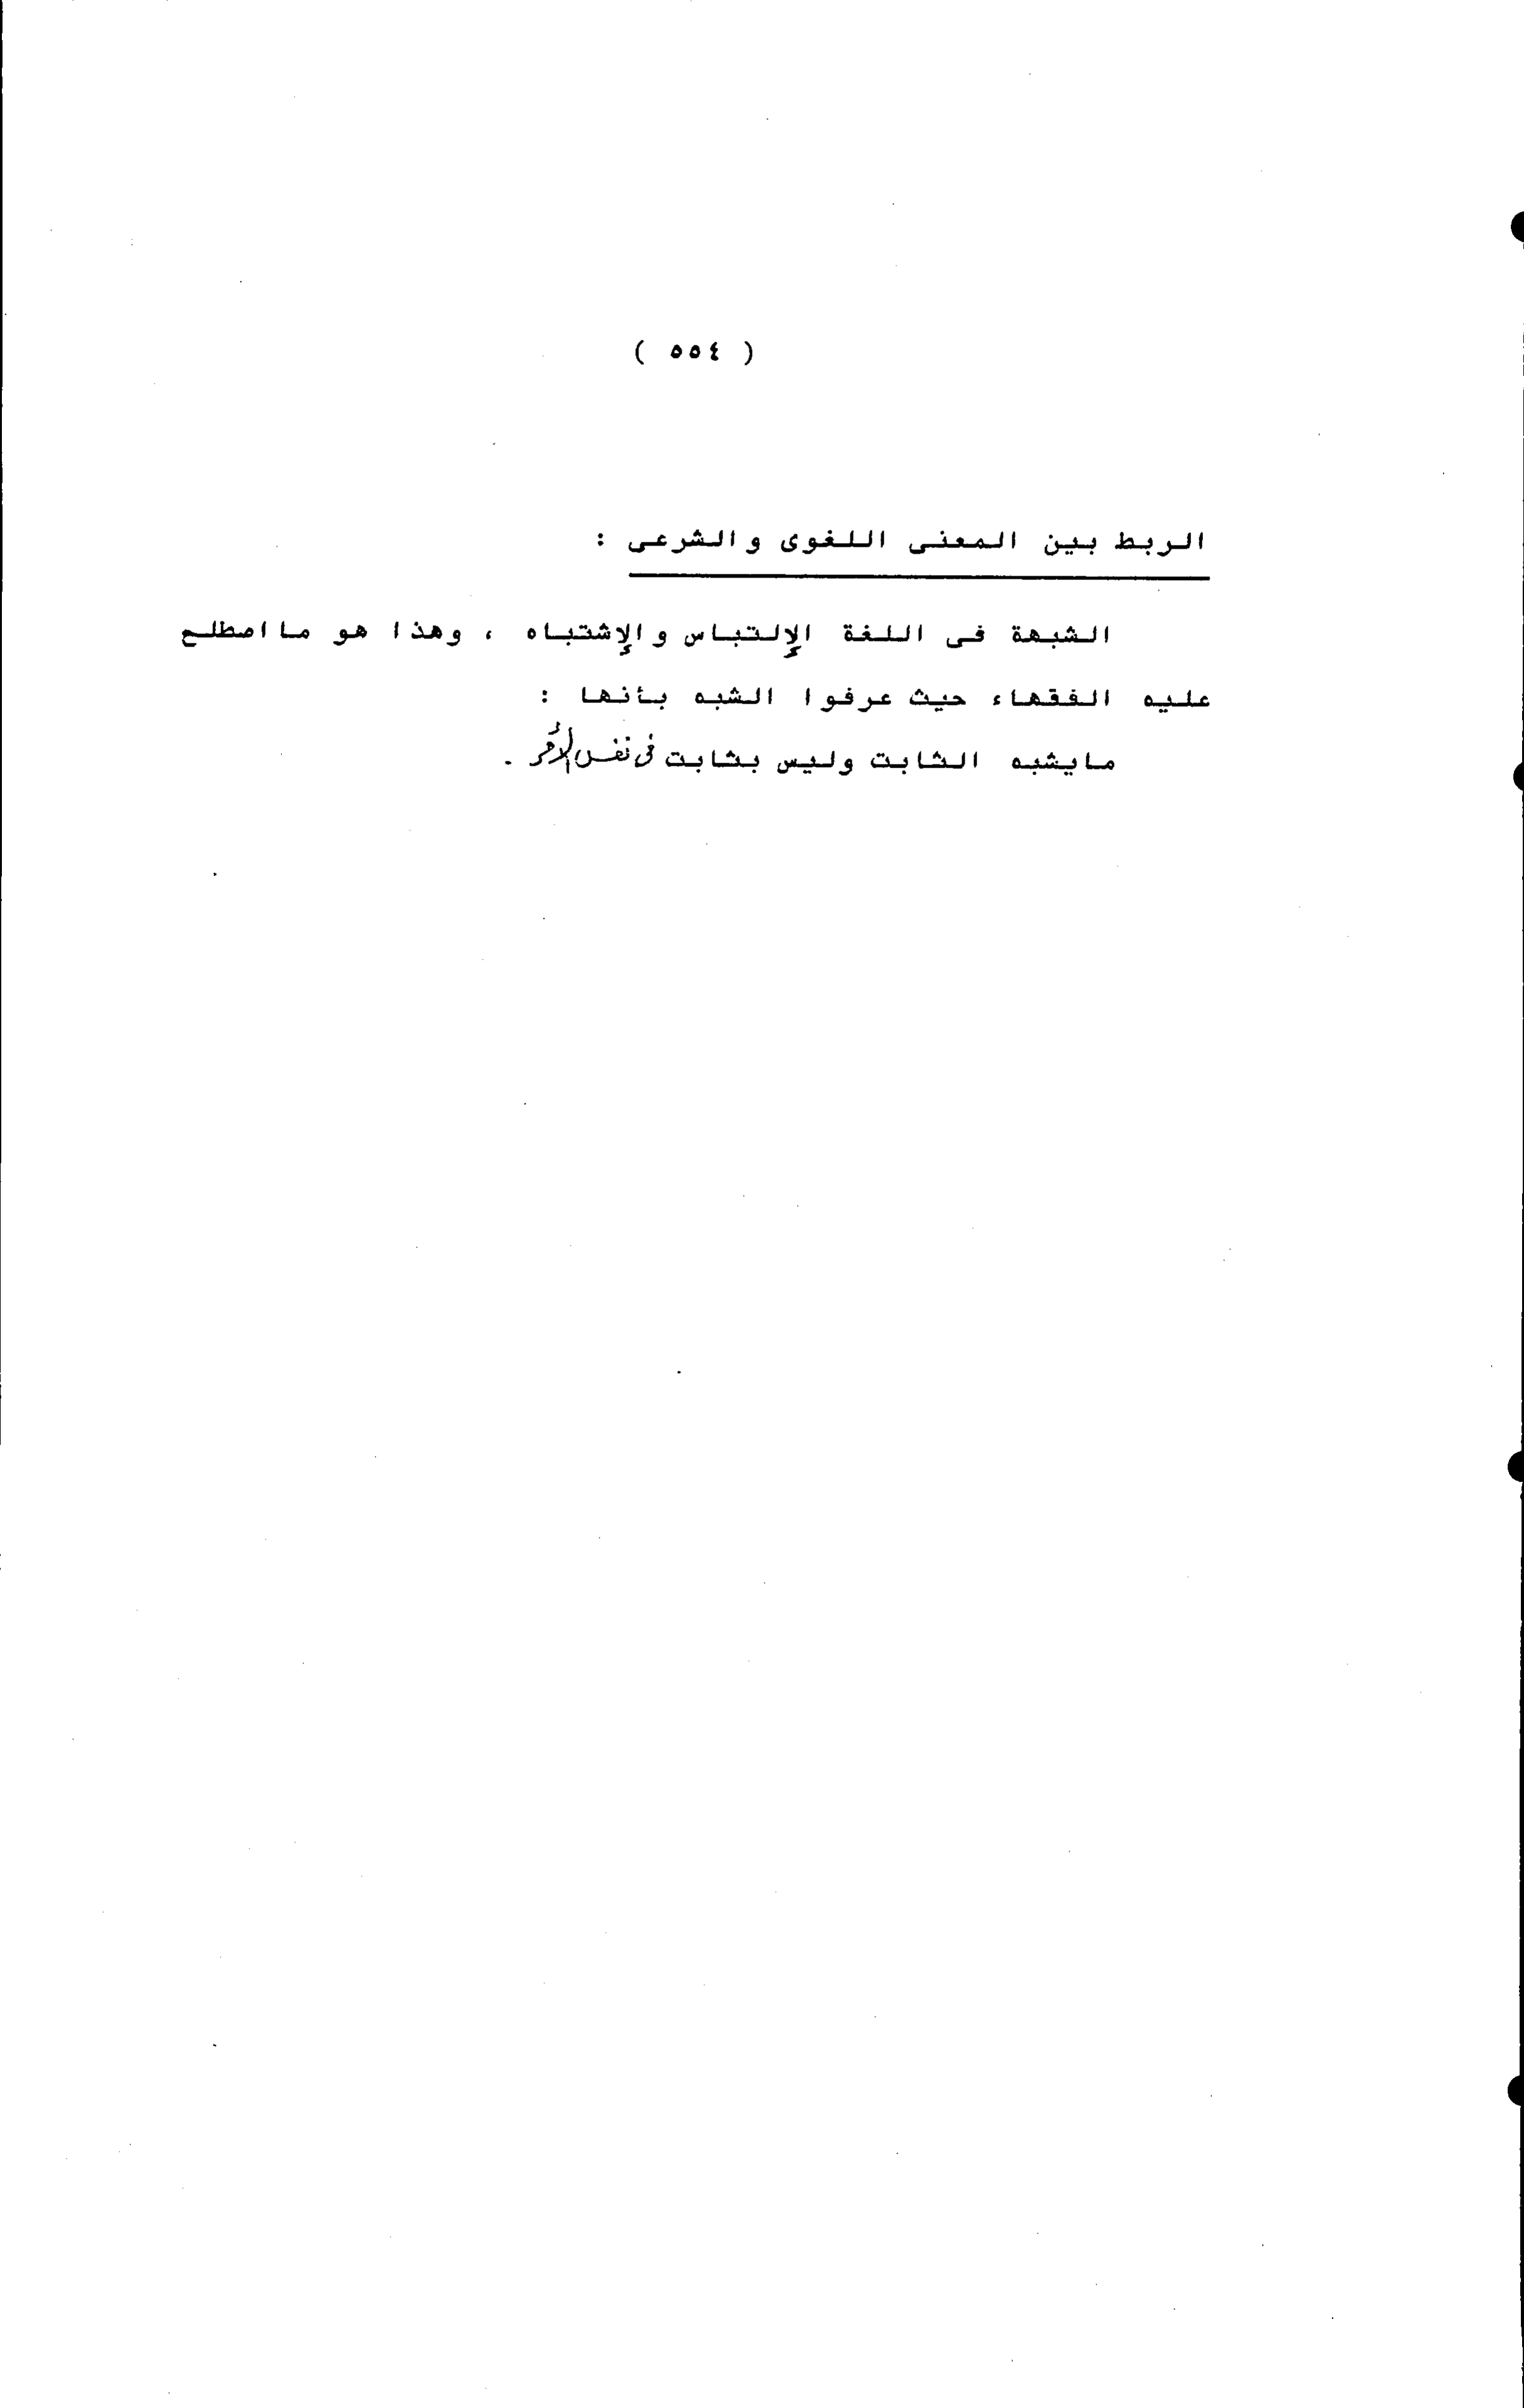 ( ٥٥٤ )
الربط بين المعنى اللغوى والشرعى :
الشبهة فى اللغة الإلتباس والإشتباه ، وهذا هو مااصطلح
عليه الفقهاء حيث عرفوا الشبه بأنها :
مايشبه الثابت وليس بثابت فى نفس الأمر .